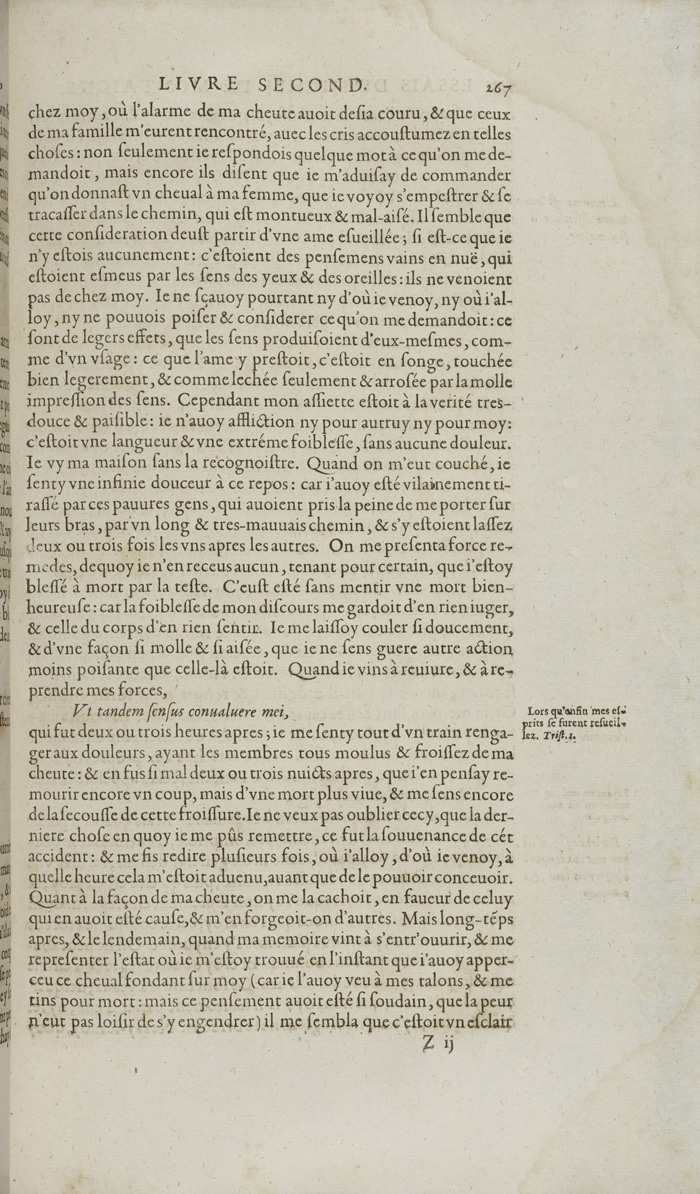 LIVRE SECOND. 267
chez moy, où l'alarme de ma cheute auoit desia couru, & que ceux
de ma famille m'eurent rencontré, auec les cris accouſtumez en telles
choſes: non ſeulement ie reſpondois quelque mot à ce qu'on me de-
mandoit, mais encore ils diſent que ie m'aduiſay de commander
qu'on donnaſt vn cheual à ma femme, que ie voyoy s'empeſtrer & ſe
tracaſſer dans le chemin, qui eſt montueux & mal-aiſé. Il ſemble que
cette conſideration deuſt partir d'vne ame eſueillée; ſi eſt-ce que ie
n'y eſtois aucunement: c'eſtoient des penſemens vains en nuë, qui
eſtoient eſmeus par les ſens des yeux & des oreilles: ils ne venoient
pas de chez moy. Ie ne ſçauoy pourtant ny d'où ie venoy, ny où i'al-
loy, ny ne pouuois poiſer & conſiderer ce qu'on me demandoit: ce
ſont de legers effets, que les ſens produiſoient d'eux-meſmes, com-
me d'vn vſage: ce que l'ame y preſtoit, c'eſtoit en ſonge, touchée
bien legerement, & comme lechée ſeulement & arroſée par la molle
impreſſion des ſens. Cependant mon aſſiette eſtoit à la verité tres-
douce & paiſible: ie n'auoy affliction ny pour autruy ny pour moy:
c'eſtoit vne langueur & vne extréme foibleſſe, ſans aucune douleur.
Ie vy ma maiſon ſans la recognoiſtre. Quand on m'eut couché, ie
ſenty vne infinie douceur à ce repos: car i'auoy eſté vilainement ti-
raſſé par ces pauures gens, qui auoient pris la peine de me porter ſur
leurs bras, par vn long & tres-mauuais chemin, & s'y eſtoient laſſez
deux ou trois fois les vns apres les autres. On me preſenta force re-
medes, dequoy ie n'en receus aucun, tenant pour certain, que i'eſtoy
bleſſé à mort par la teſte. C'euſt eſté ſans mentir vne mort bien-
heureuſe: car la foibleſſe de mon diſcours me gardoit d'en rien iuger,
& celle du corps d'en rien ſentir. Ie me laiſſoy couler ſi doucement,
& d'vne façon ſi molle & ſi aiſée, que ie ne ſens guere autre action
moins poiſante que celle-là eſtoit. Quand ie vins à reuiure, & à re-
prendre mes forces,
Vt tandem ſenſus conualuere mei,
Lors qu'anfin mes eſ-
prits ſe furent reſueil-
lez. Triſt. 1.
qui fut deux ou trois heures apres; ie me ſenty tout d'vn train renga-
ger aux douleurs, ayant les membres tous moulus & froiſſez de ma
cheute: & en fus ſi mal deux ou trois nuicts apres, que i'en penſay re-
mourir encore vn coup, mais d'vne mort plus viue, & me ſens encore
de la ſecouſſe de cette froiſſure. Ie ne veux pas oublier cecy, que la der-
niere choſe en quoy ie me pûs remettre, ce fut la ſouuenance de cét
accident: & me fis redire pluſieurs fois, où i'alloy, d'où ie venoy, à
quelle heure cela m'eſtoit aduenu, auant que de le pouuoir conceuoir.
Quant à la façon de ma cheute, on me la cachoit, en faueur de celuy
qui en auoit eſté cauſe, & m'en forgeoit-on d'autres. Mais long-tẽps
apres, & le lendemain, quand ma memoire vint à s'entr'ouurir, & me
repreſenter l'eſtat où ie m'eſtoy trouué en l'inſtant que i'auoy apper-
ceu ce cheual fondant ſur moy (car ie l'auoy veu à mes talons, & me
tins pour mort: mais ce penſement auoit eſté ſi ſoudain, que la peur
n'eut pas loiſir de s'y engendrer) il me ſembla que c'eſtoit vn eſclair
Z ij